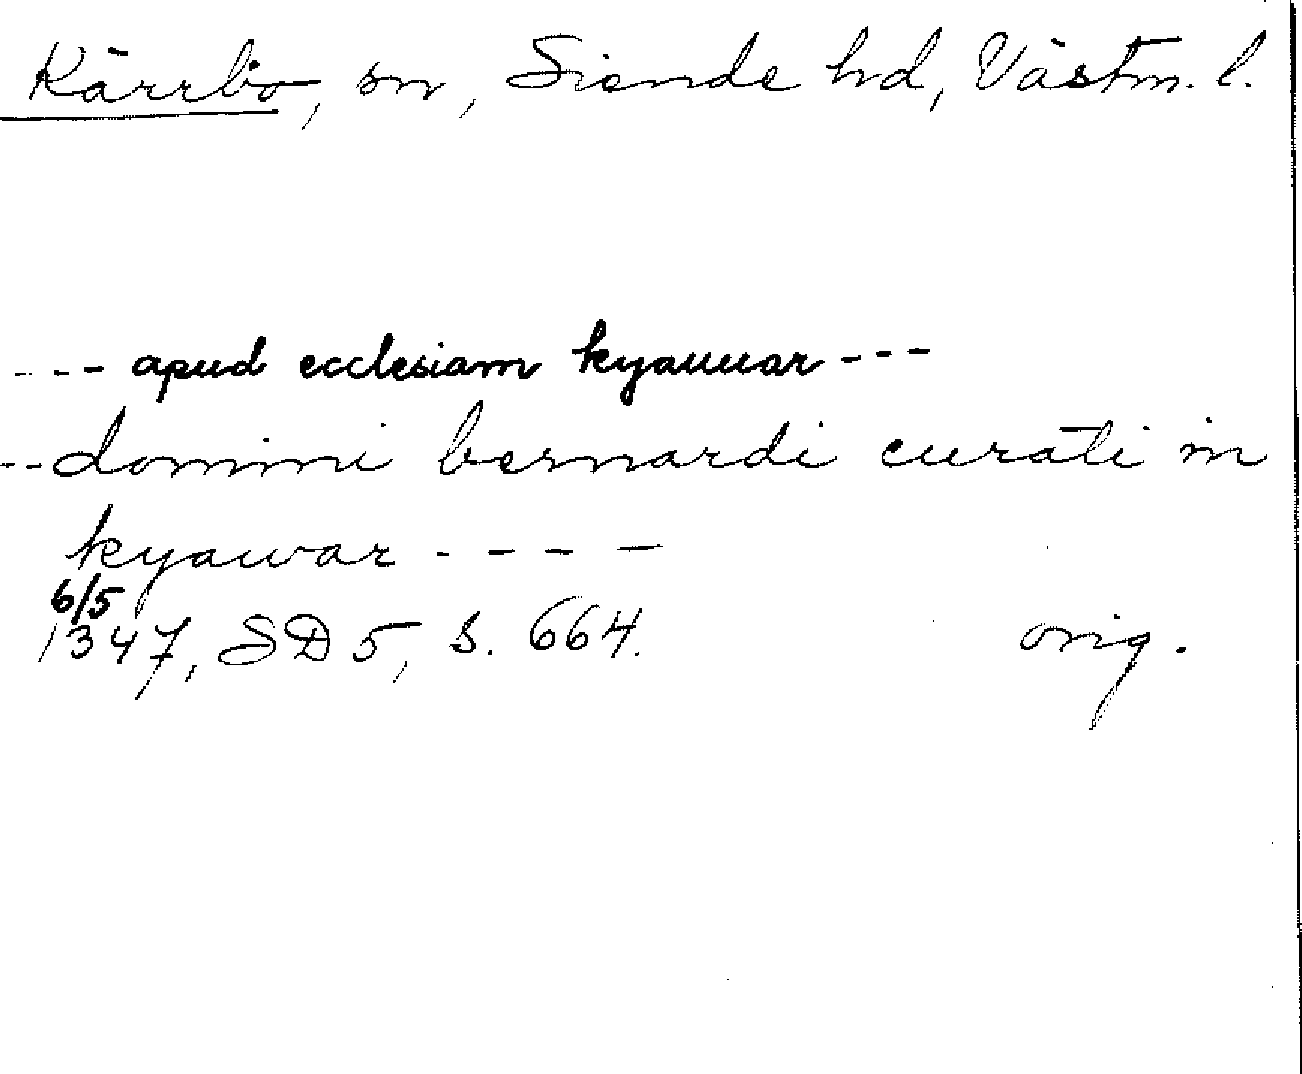 Kärrbo, sn, Siende hd, Västm. l.
--- apud ecclesiam kyauuar ---
-- domini bernardi curati in
kyawar ----
6/5
1347, SD 5, s. 664. orig.